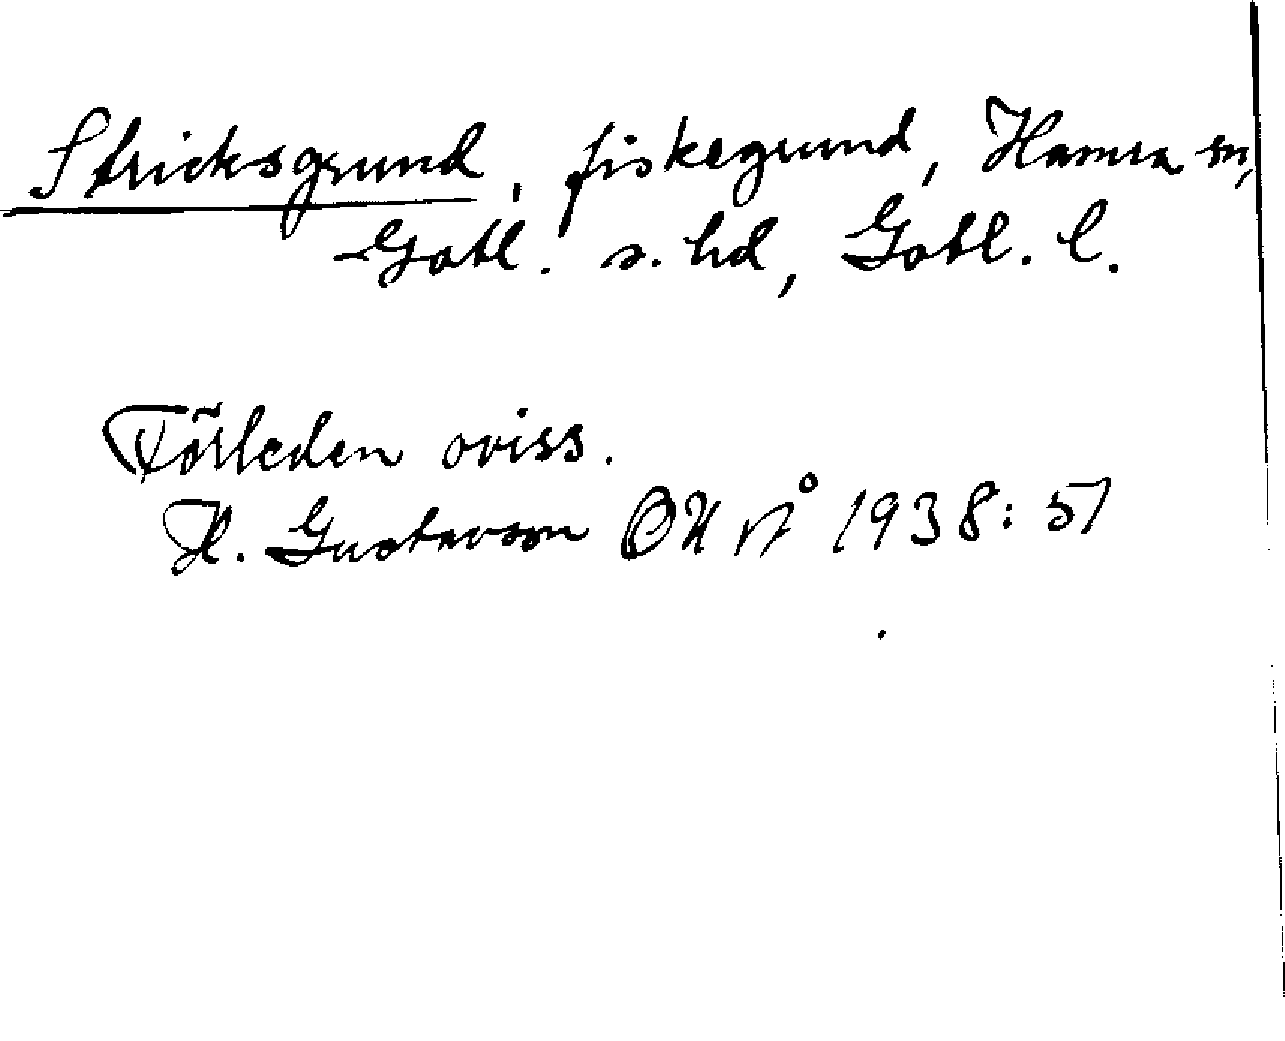 Stricksgrund, fiskegrund, Hamra sn,
Gotl. s. hd, Gotl. l.
Förleden oviss.
H. Gustavson OUÅ 1938: 51